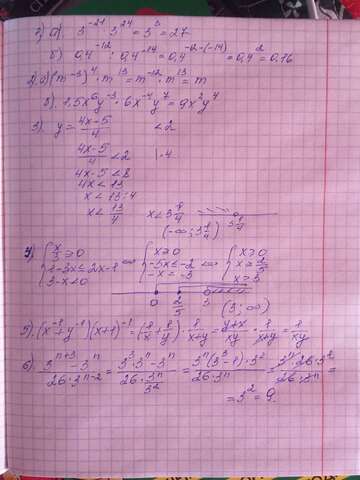 1) а). 3⁻²¹ · 3²⁴ = 3³ = 27
б) 0,4⁻¹² : 0,4⁻¹⁴ = 0,4⁻¹²⁻⁽⁻¹⁴⁾ = 0,4² = 0,16
2. а) (m⁻³)⁴ · m¹³ = m⁻¹² · m¹³ = m
б). 1,5x⁶y⁻³ · 6x⁻⁴y⁷ = 9x²y⁴
3) y = (4x-5)/4 < 2
(4x-5)/4 < 2 | ·4
4x-5 < 8
4x < 13
x < 13:4
x < 13/4 x < 3 1/4 3 1/4
(-∞; 3 1/4)
4) { x/3 ≥ 0 ⇔ { x ≥ 0 ⇔ { x ≥ 0
{ 1-3x ≤ 2x-1 { -5x ≤ -2 { x ≥ 2/5
{ 3-x < 0 { -x < -3 { x > 3
0 2/5 3 (3; ∞)
5). (x⁻¹+y⁻¹)(x+y)⁻¹ = (1/x + 1/y) · 1/(x+y) = (y+x)/xy · 1/(x+y) = 1/xy
6) (3ⁿ⁺³ - 3ⁿ)/(26 · 3ⁿ⁻²) = (3³ · 3ⁿ - 3ⁿ)/(26 · 3ⁿ/3²) = 3ⁿ(3³-1) · 3²/(26 · 3ⁿ) = 3ⁿ · 26 · 3²/(26 · 3ⁿ) =
= 3² = 9.